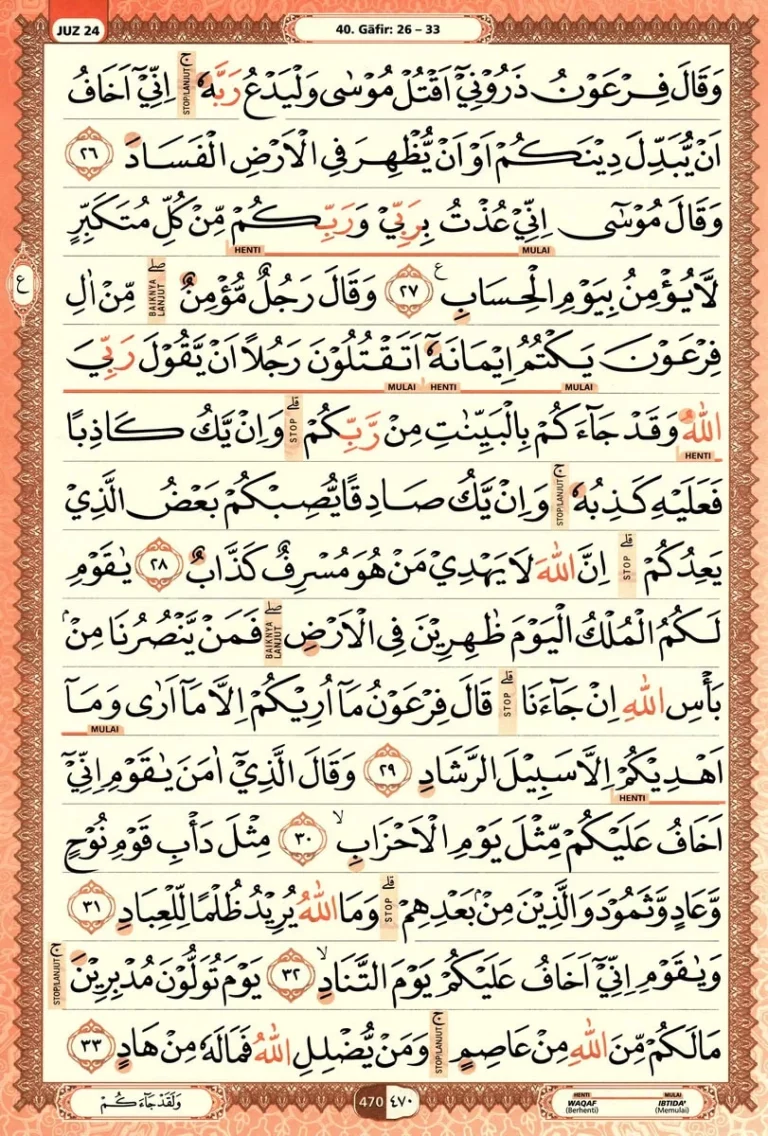 JUZ 24
40. Gāfir: 26 – 33
وَقَالَ فِرْعَوْنُ ذَرُوْنِيْٓ اَقْتُلْ مُوْسٰى وَلْيَدْعُ رَبَّهٗ ۚ اِنِّيْٓ اَخَافُ
STOP/LANJUT
اَنْ يُّبَدِّلَ دِيْنَكُمْ اَوْ اَنْ يُّظْهِرَ فِى الْاَرْضِ الْفَسَادَ ٢٦
وَقَالَ مُوْسٰىٓ اِنِّيْ عُذْتُ بِرَبِّيْ وَرَبِّكُمْ مِّنْ كُلِّ مُتَكَبِّرٍ
MULAI HENTI
ع
لَّا يُؤْمِنُ بِيَوْمِ الْحِسَابِ ࣖ ٢٧ وَقَالَ رَجُلٌ مُّؤْمِنٌۖ مِّنْ اٰلِ
BAIKNYA LANJUT
فِرْعَوْنَ يَكْتُمُ اِيْمَانَهٗٓ اَتَقْتُلُوْنَ رَجُلًا اَنْ يَّقُوْلَ رَبِّيَ
MULAI HENTI MULAI
اللّٰهُ وَقَدْ جَاۤءَكُمْ بِالْبَيِّنٰتِ مِنْ رَّبِّكُمْ ۗ وَاِنْ يَّكُ كَاذِبًا
STOP
HENTI
فَعَلَيْهِ كَذِبُهٗ ۚ وَاِنْ يَّكُ صَادِقًا يُّصِبْكُمْ بَعْضُ الَّذِيْ
STOP/LANJUT
يَعِدُكُمْ ۗ اِنَّ اللّٰهَ لَا يَهْدِيْ مَنْ هُوَ مُسْرِفٌ كَذَّابٌ ٢٨ يٰقَوْمِ
STOP
لَكُمُ الْمُلْكُ الْيَوْمَ ظٰهِرِيْنَ فِى الْاَرْضِۖ فَمَنْ يَّنْصُرُنَا مِنْۢ
BAIKNYA LANJUT
بَأْسِ اللّٰهِ اِنْ جَاۤءَنَا ۗ قَالَ فِرْعَوْنُ مَآ اُرِيْكُمْ اِلَّا مَآ اَرٰى وَمَآ
STOP
MULAI
اَهْدِيْكُمْ اِلَّا سَبِيْلَ الرَّشَادِ ٢٩ وَقَالَ الَّذِيْٓ اٰمَنَ يٰقَوْمِ اِنِّيْٓ
HENTI
اَخَافُ عَلَيْكُمْ مِّثْلَ يَوْمِ الْاَحْزَابِۙ ٣٠ مِثْلَ دَأْبِ قَوْمِ نُوْحٍ
وَّعَادٍ وَّثَمُوْدَ وَالَّذِيْنَ مِنْۢ بَعْدِهِمْ ۗ وَمَا اللّٰهُ يُرِيْدُ ظُلْمًا لِّلْعِبَادِ ٣١
STOP
وَيٰقَوْمِ اِنِّيْٓ اَخَافُ عَلَيْكُمْ يَوْمَ التَّنَادِۙ ٣٢ يَوْمَ تُوَلُّوْنَ مُدْبِرِيْنَۚ
STOP/LANJUT
مَا لَكُمْ مِّنَ اللّٰهِ مِنْ عَاصِمٍۚ وَمَنْ يُّضْلِلِ اللّٰهُ فَمَا لَهٗ مِنْ هَادٍ ٣٣
STOP/LANJUT
وَلَقَدْ جَاۤءَكُمْ
470 ٤٧٠
HENTI
WAQAF
(Berhenti)
MULAI
IBTIDA'
(Memulai)